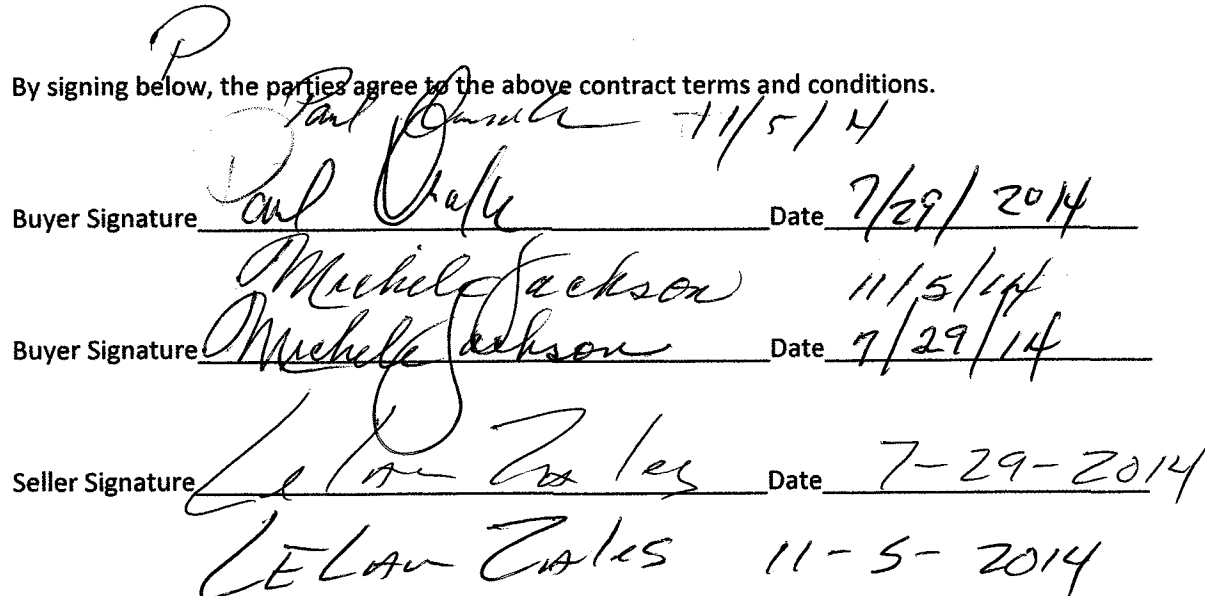 P
By signing below, the parties agree to the above contract terms and conditions.
Paul 11/5/14
Buyer Signature Paul Date 7/29/2014
Michele Jackson 11/5/14
Buyer Signature Michele Jackson Date 7/29/14
Seller Signature Date 7-29-2014
11-5-2014